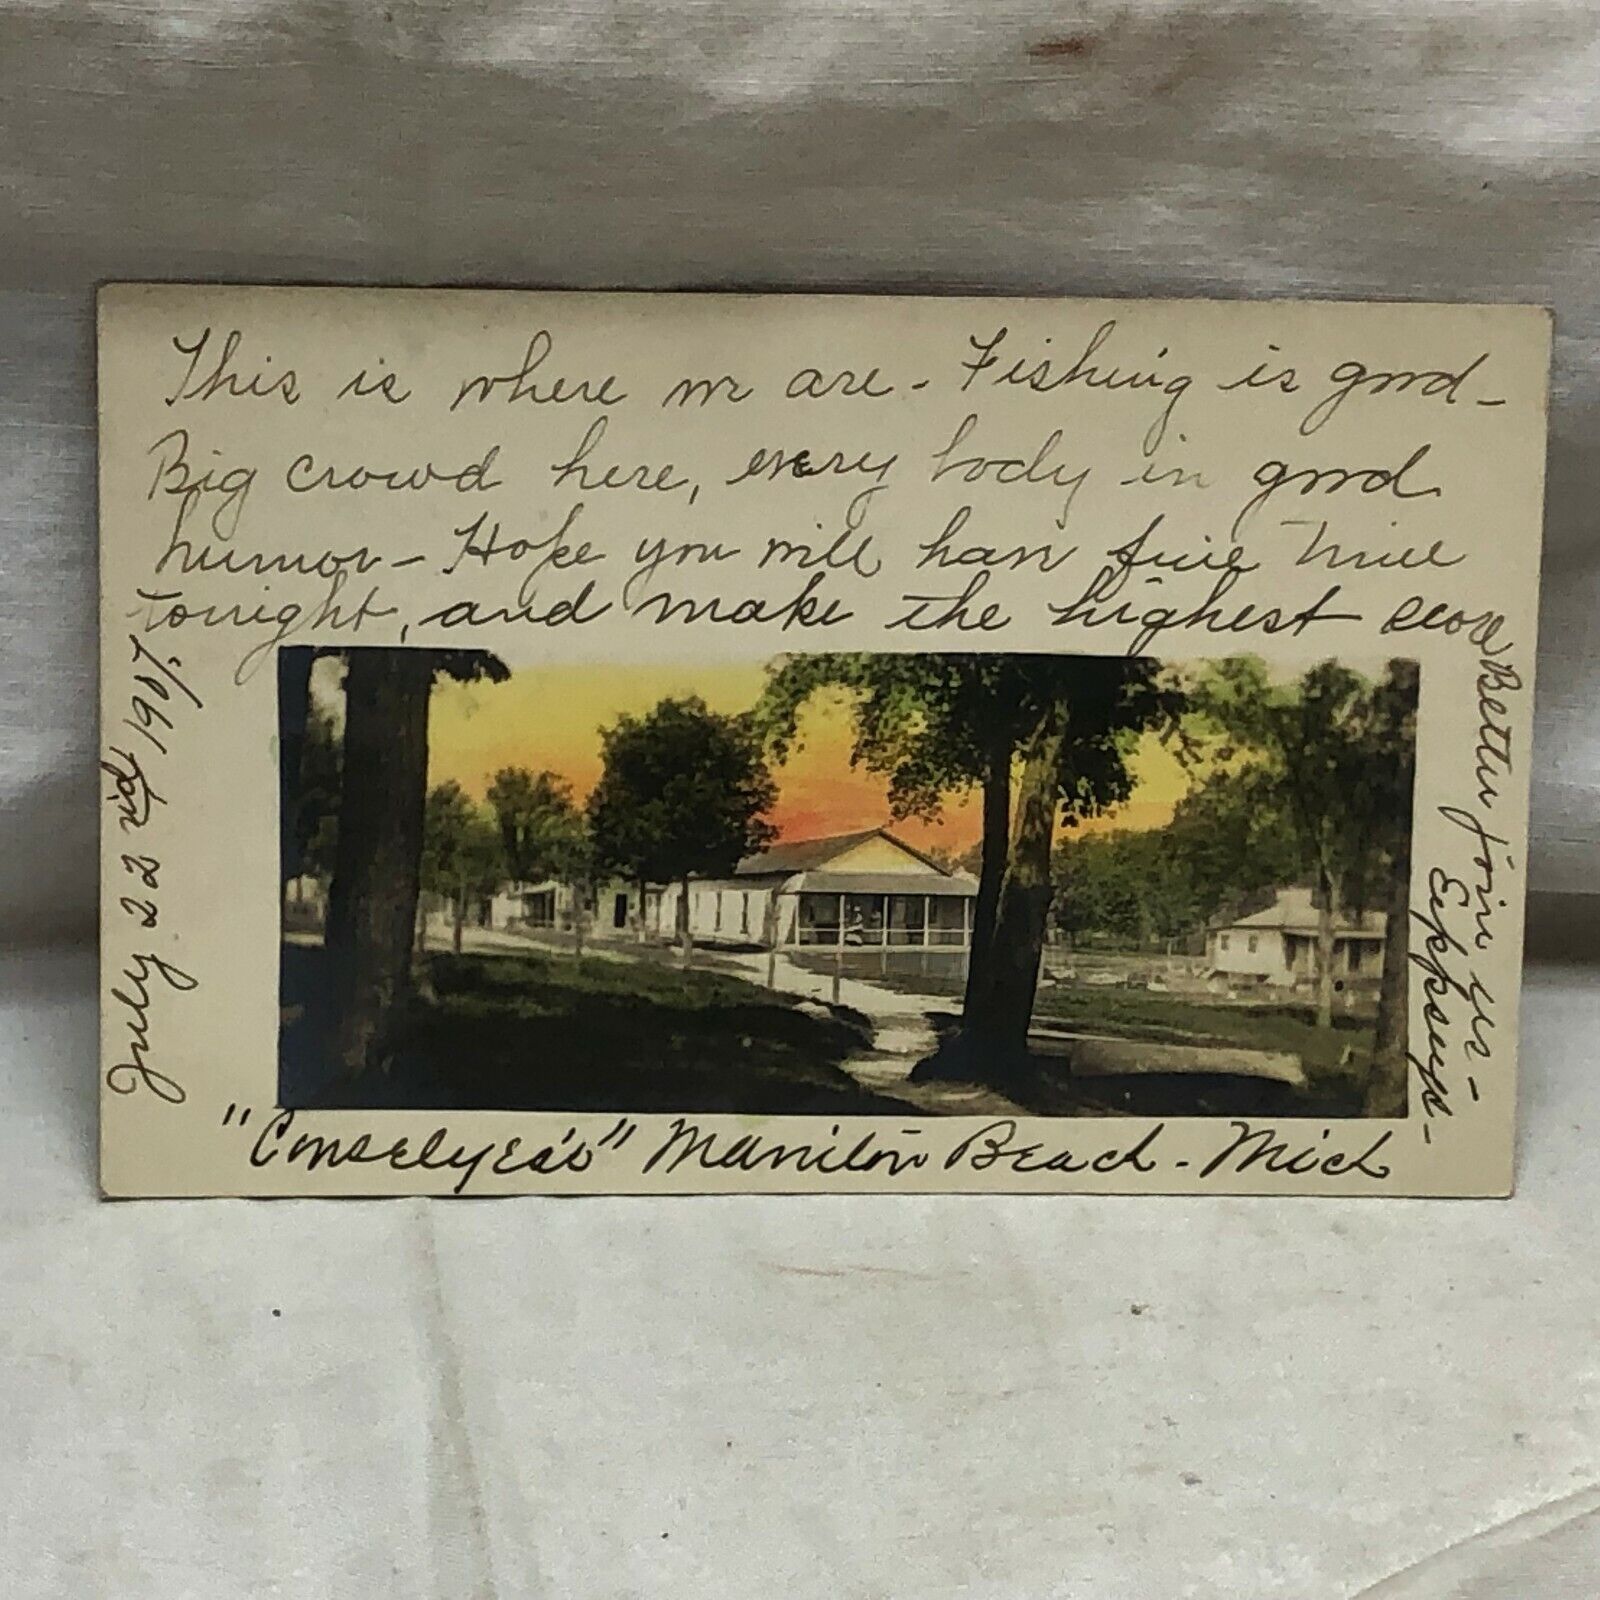 This is where we are - Fishing is good -
Big crowd here, every body in good
humor - Hope you will have fine time
tonight, and make the highest score
Better join us -
July 22nd 1907.
"Conselyea's" Manitou Beach - Mich